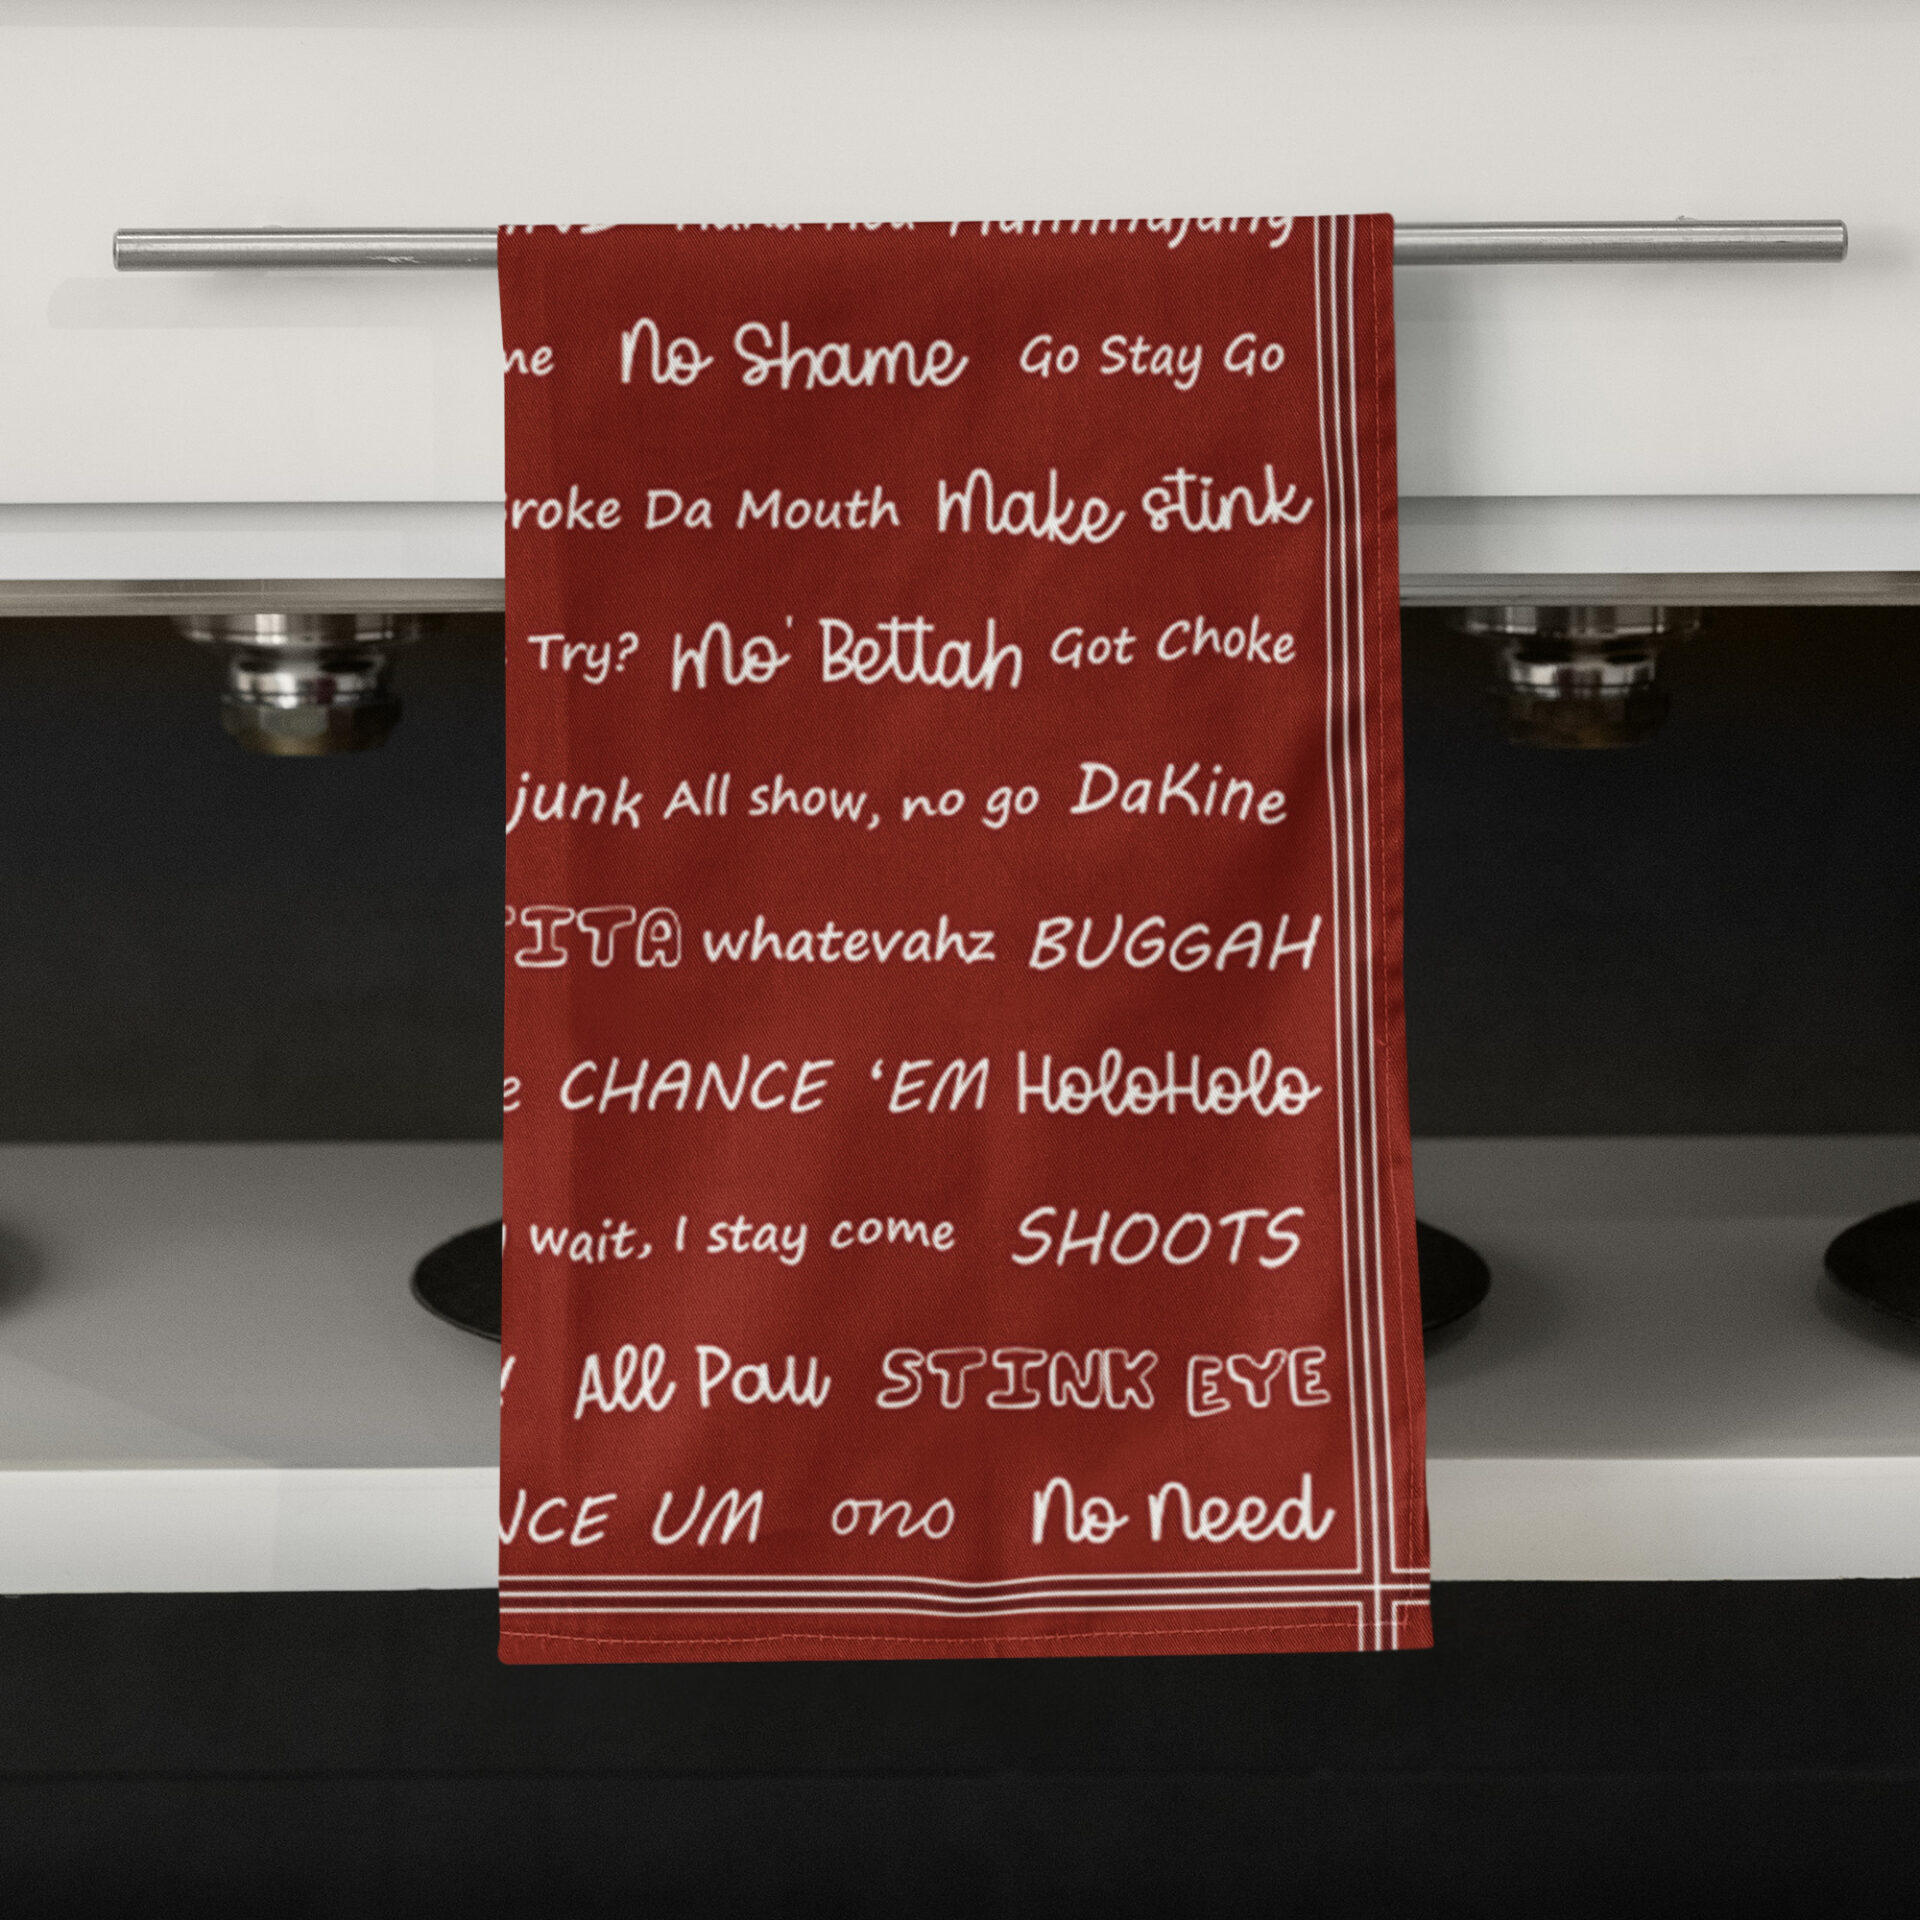 No Shame Go Stay Go
Da Mouth Make stink
Try? Mo' Bettah Got Choke
junk All show, no go DaKine
whatevahz BUGGAH
CHANCE ‘EM HoloHolo
wait, I stay come SHOOTS
All Pau STINK EYE
UM ono No Need